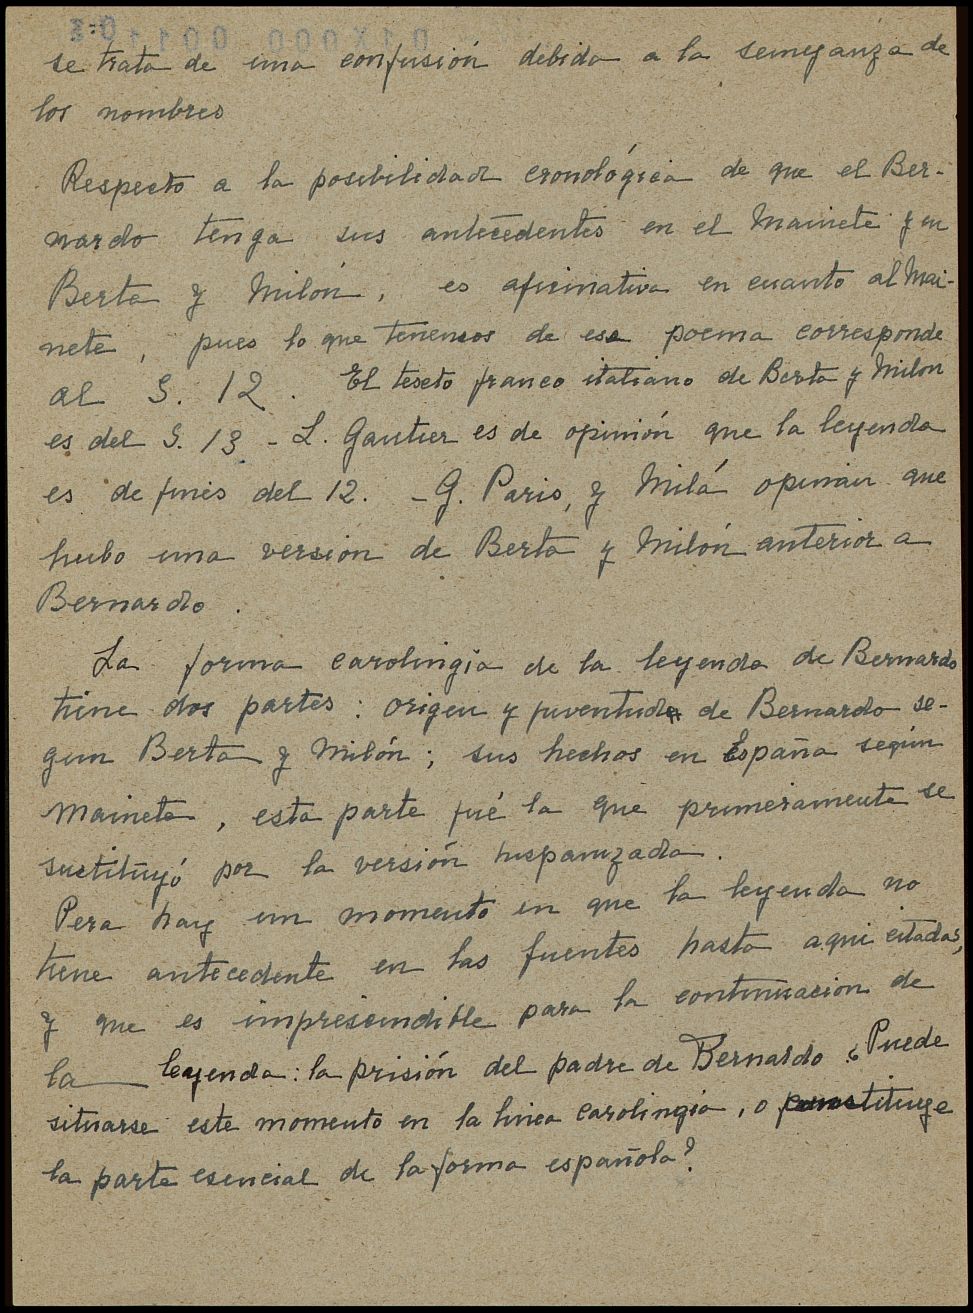 se trata de una confusión debida a la semejanza de
los nombres
Respecto a la posibilidad cronológica de que el Ber-
nardo tenga sus antecedentes en el Mainete y en
Berta y Milón, es afirmativa en cuanto al Mai-
nete, pues lo que tenemos de ese poema corresponde
al S. 12. El texto franco italiano de Berta y Milon
es del S. 13 - L. Gautier es de opinión que la leyenda
es de fines del 12. - G. Paris, y Milá opinan que
hubo una version de Berta y Milón anterior a
Bernardo.
La forma carolingia de la leyenda de Bernardo
tiene dos partes: origen y juventud de Bernardo se-
gun Berta y Milón; sus hechos en España según
Mainete, esta parte fué la que primeramente se
sustituyó por la versión hispanizada.
Pera hay un momento en que la leyenda no
tiene antecedente en las fuentes hasta aqui citadas,
y que es imprescindible para la continuacion de
la leyenda: la prisión del padre de Bernardo ¿Puede
situarse este momento en la linea carolingia, o constituye
la parte esencial de la forma española?